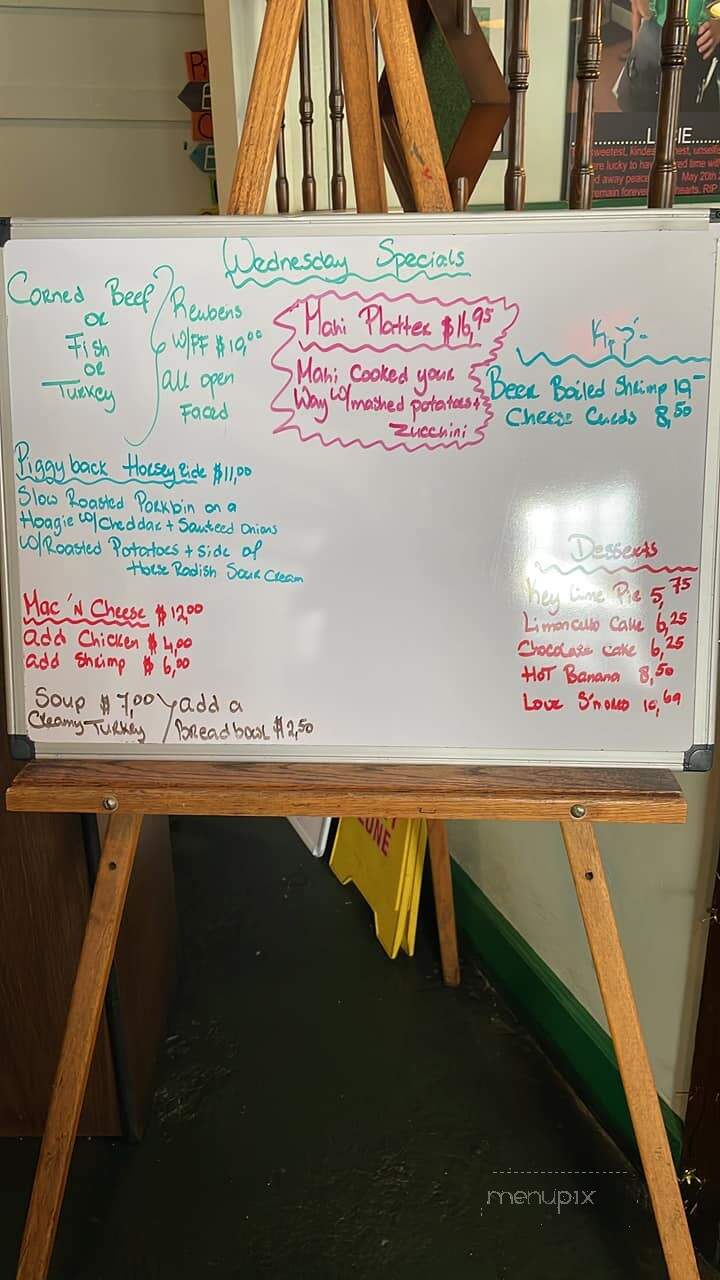 Wednesday Specials
Corned Beef
or
Fish
or
Turkey
Reubens
w/FF $10,00
all open
Faced
Mahi Platter $16,95
Mahi Cooked your
Way w/mashed potatoes +
Zucchini
Beer Boiled Shrimp 19-
Cheese Curds 8,50
Piggyback Horsey Ride $11,00
Slow Roasted Porkloin on a
Hoagie w/Cheddar + Sauteed Onions
w/Roasted Potatoes + side of
Horse Radish Sour Cream
Mac 'N Cheese $12,00
add Chicken $4,00
add Shrimp $6,00
Soup $7,00
Creamy Turkey
add a
Breadbowl $2,50
Desserts
Key Lime Pie 5,75
Limoncello Cake 6,25
Chocolate Cake 6,25
Hot Banana 8,50
Love S'mores 10,69
menupix